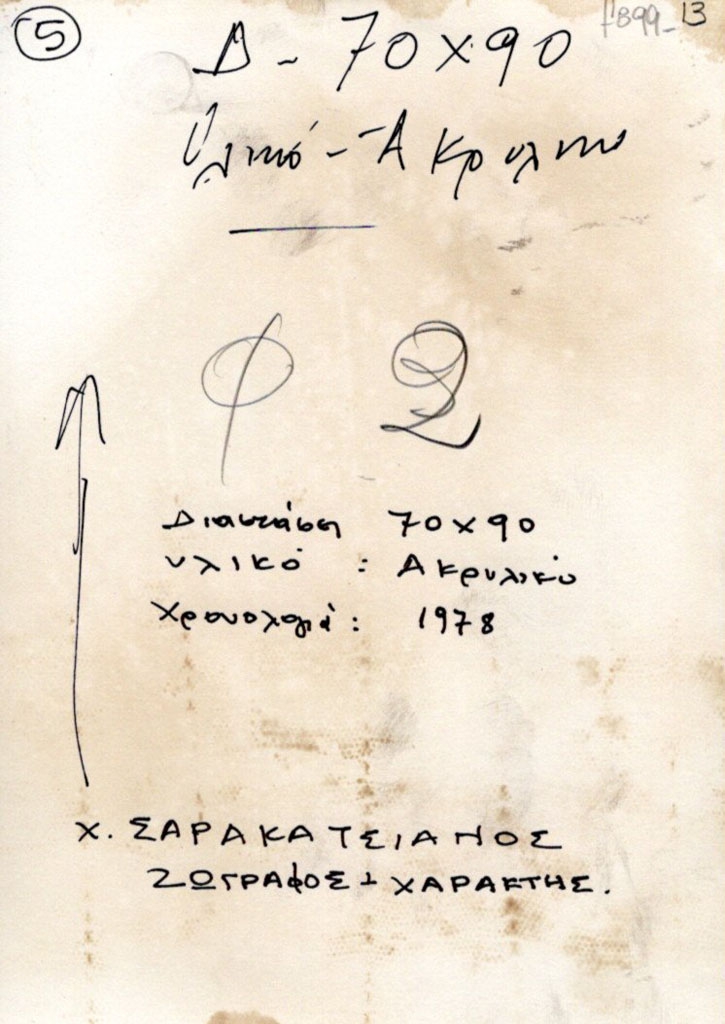 5
Γ899-13
Δ - 70x90
Υλικό - Ακρυλικό
Φ 2
Διαστάση 70x90
υλικό : Ακρυλικό
Χρονολογιά : 1978
Χ. ΣΑΡΑΚΑΤΣΙΑΝΟΣ
ΖΩΓΡΑΦΟΣ + ΧΑΡΑΚΤΗΣ.